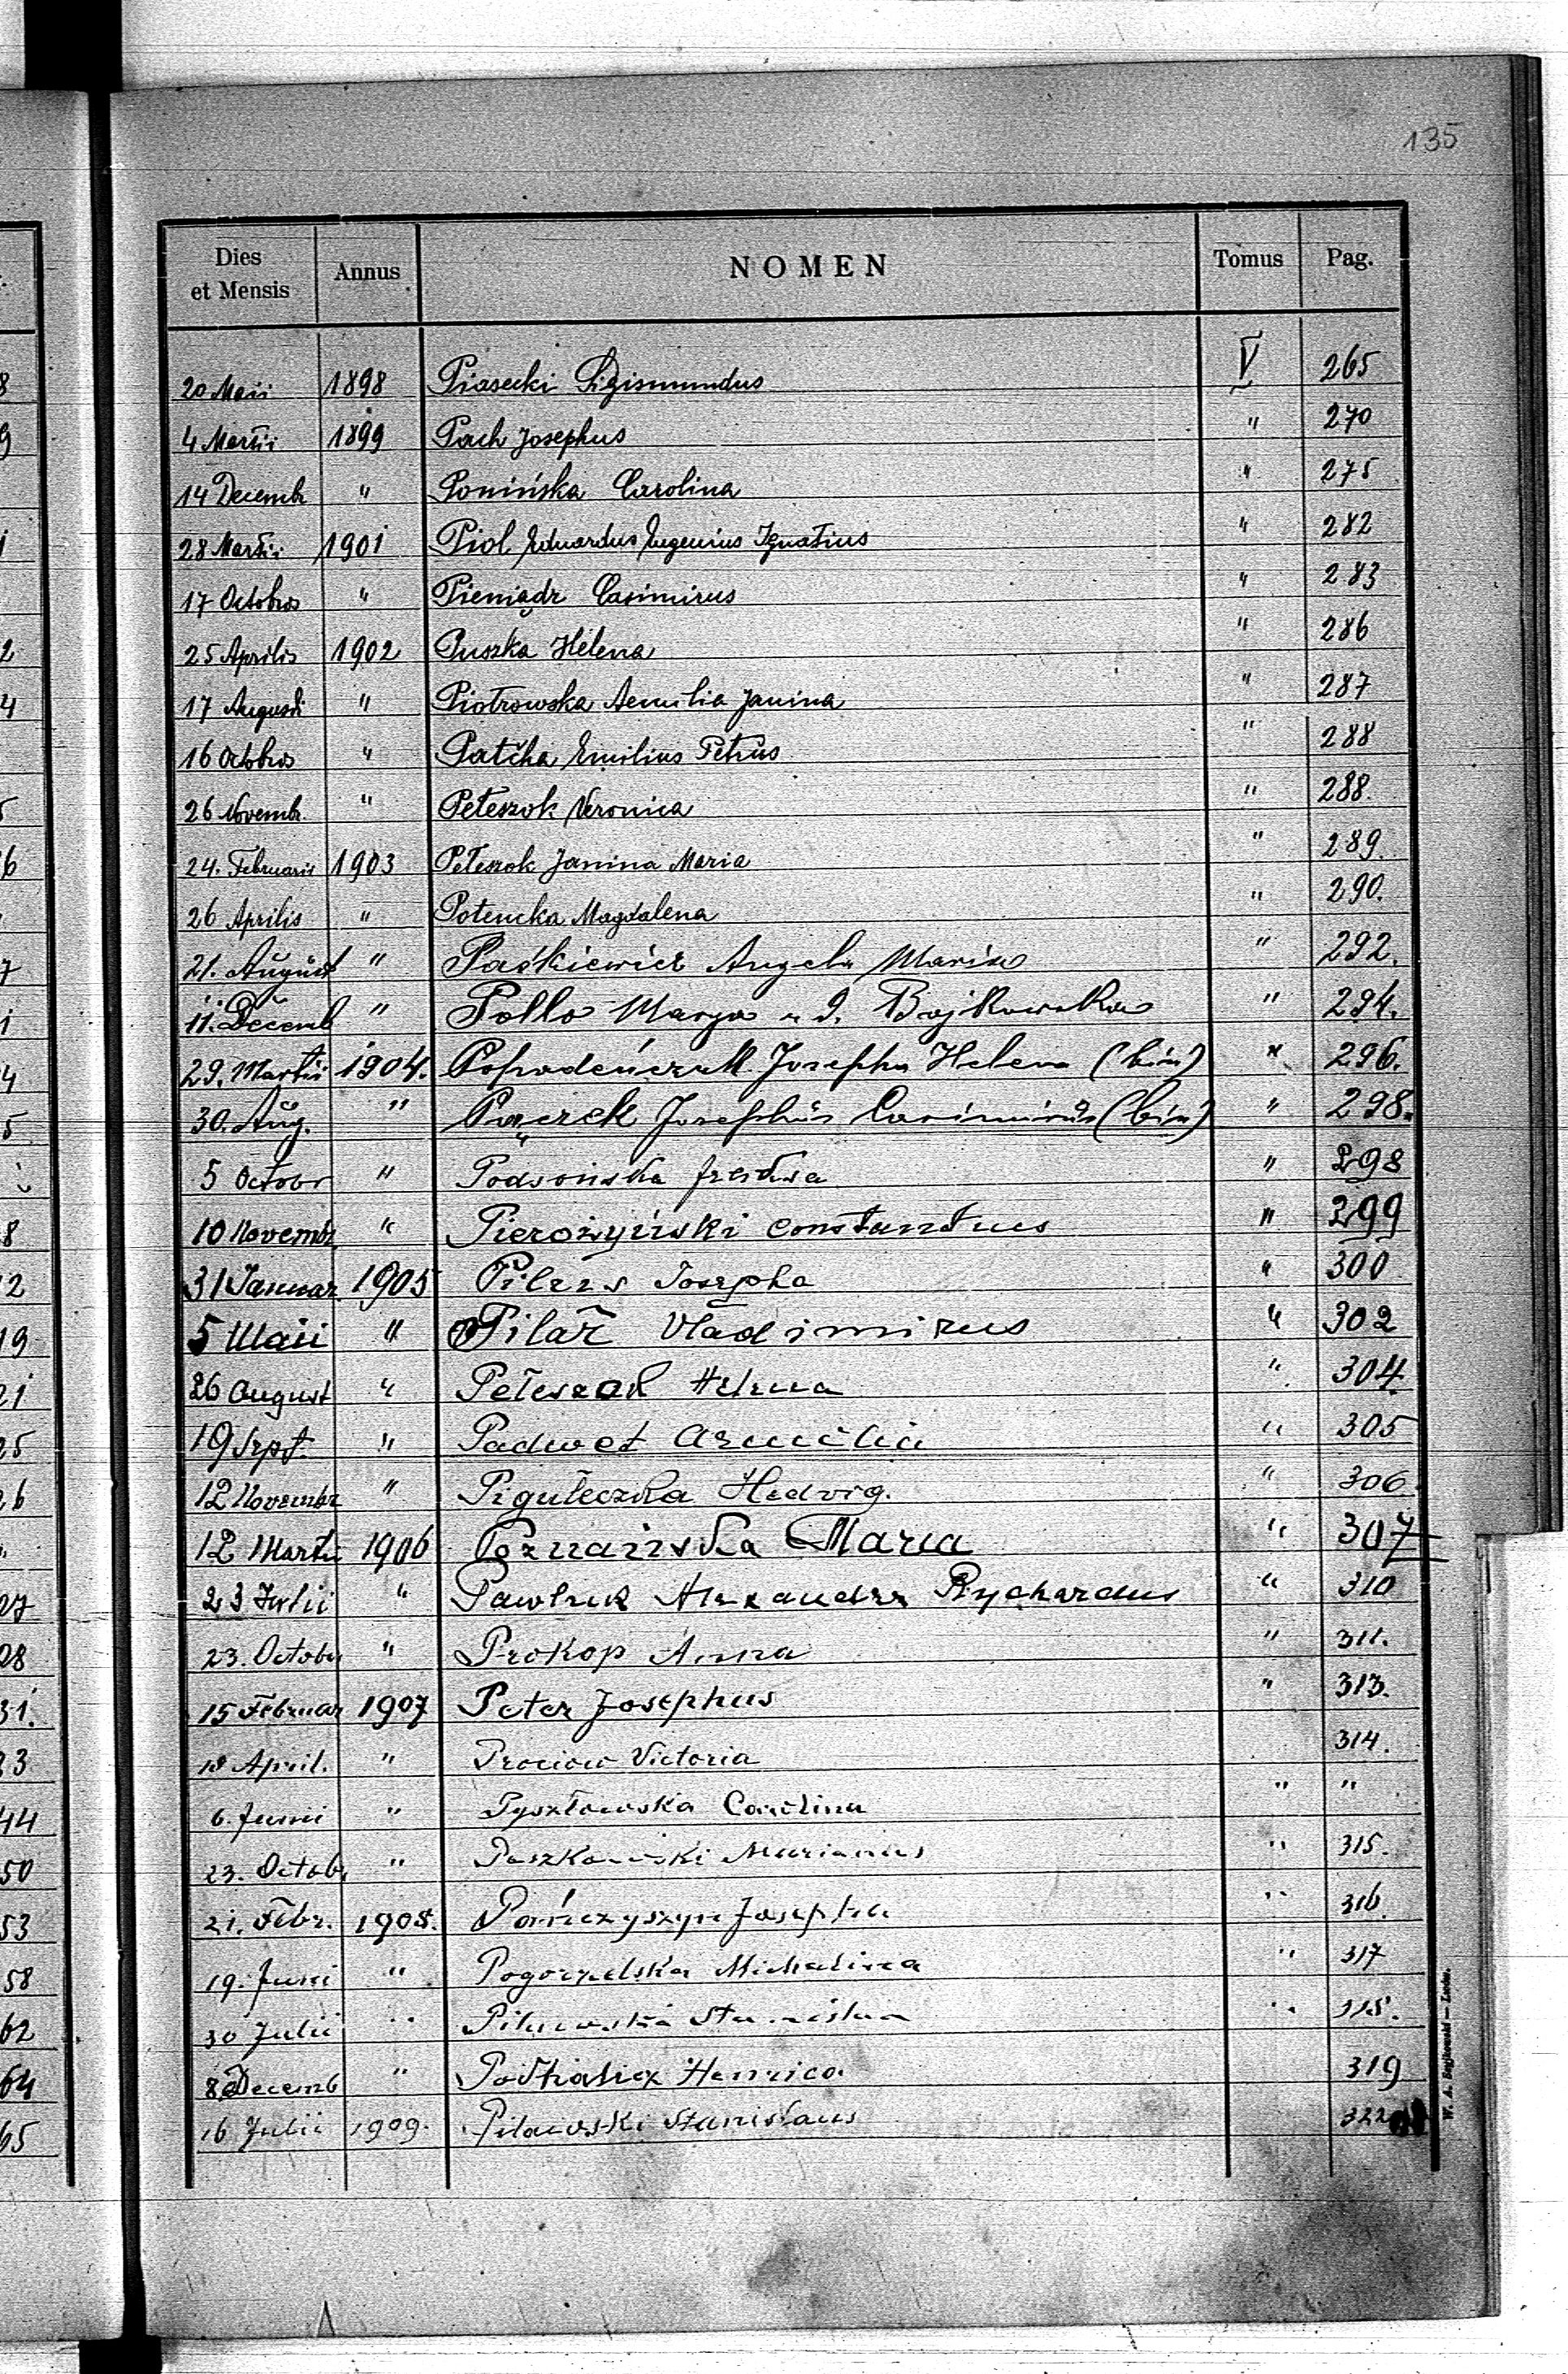 135
Dies et Mensis Annus NOMEN Tomus Pag.
20 Maii 1898 Piasecki Sigismundus V 265
4 Martii 1899 Pach Josephus " 270
14 Decembr " Ponińska Carolina " 275
28 Martii 1901 Piol Eduardus Eugenius Ignatius " 282
17 Octobris " Pieniądz Casimirus " 283
25 Aprilis 1902 Puszka Helena " 286
17 Augusti " Piotrowska Aemilia Janina " 287
16 Octobris " Patčka Emilius Petrus " 288
26 Novembr. " Peteszok Veronica " 288.
24. Februarii 1903 Peteszok Janina Maria " 289.
26 Aprilis " Potencka Magdalena " 290.
21. August " Paśkiewicz Angela Maria " 292.
11. Decemb " Pollo Marya Bajkowska " 294.
29. Martii 1904. Josepha Helena (bis) " 296.
30. Aug. " Pączek Josephus Casimirus (bis) " 298.
5 Octobr " Podsońska " 298
10 Novembr. " Pierożyński Constantius " 299
31 Januar. 1905 Josepha " 300
5 Maii " Pilař Vladimirus " 302
26 August " Peteszok Helena " 304.
19 Sept. " Padwet " 305
12 Novembr " Pigułeczka Hedvig. " 306
12 Marti 1906 Poznańska Maria " 307
23 Julii " Pawluk Alexander Rychardus " 310
23. Octobr " Prokop Anna " 311.
15 Februar 1907 Peter Josephus " 313.
18 April. " Prociow Victoria 314.
6. Junii " Pyszłowska Carolina " "
23. Octobr " Paszkowski Marianus " 315.
21. Febr. 1908. Pańczyszyn Josepha " 316.
19. Juni " Pogorzelska Michalina " 317
30 Julii " Pilawska " 318.
8 Decemb " Podhalicz Henrica 319
16 Julii 1909. Pilawski Stanislaus 322
W. A. Bajkowski — Lwów.